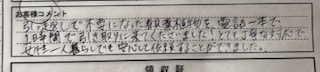 お客様コメント
引っ越しで不要になった観葉植物を電話一本で
1時間で引き取りに来てくださいました！とても丁寧な対応で
女性一人暮らしでも安心して依頼することができました。
領収証